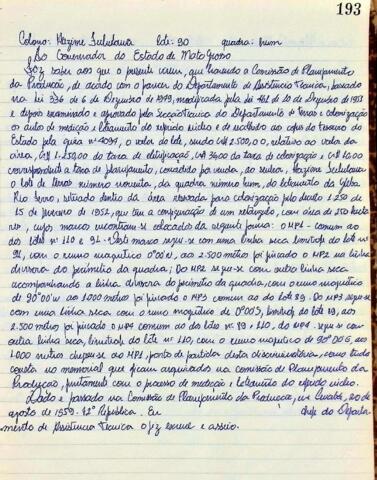 193
Colono: Hazime lote: 90 quadra: hum
Ao Governador do Estado de Mato Grosso
Faz saber aos que o presente virem, que havendo a Comissão de Planejamento
da Produção, de acôrdo com o parecer do Departamento de Assistência Técnica, baseado
na Lei 336 de 6 de Dezembro de 1949, modificada pela lei 461 de 10 de Dezembro de 1951
e depois examinado e aprovado pela Secção Técnica do Departamento de Terras e Colonização
os autos de medição e loteamento do referido núcleo e de recolhido aos cofres do Tesouro do
Estado pela guia nº 4097, o valor do lote, sendo Cr$ 2.500,00, relativo ao valor da
área, Cr$ 1.250,00 da taxa de , Cr$ da taxa de colonização e Cr$
correspondente a taxa de planejamento, concedido por venda, ao senhor, Hazime
o lote de terras número noventa, da quadra número hum, do loteamento da Gleba
Rio Ferro, situado dentro da área reservada para colonização pelo decreto 1.250 de
15 de janeiro de 1952, que tem a configuração de um retângulo, com área de 250 hecta
res, cujos marcos encontram-se colocados da seguinte forma: o MP1 - comum ao
dos lotes nº 110 e 91 - Deste marco segue-se com uma linha seca limítrofe do lote nº
91, com o rumo magnético 0º00'N, aos 2.500 metros foi fincado o MP2 na linha
divisora do perímetro da quadra; Do MP2 segue-se com outra linha seca
acompanhando a linha divisora do perímetro da quadra, com o rumo magnético
de 90º00'W aos 1.000 metros foi fincado o MP3 comum ao do lote 89. Do MP3 segue-se
com uma linha seca com o rumo magnético de 0º00'S, limítrofe do lote 89, aos
2.500 metros foi fincado o MP4 comum ao dos lotes nº 89 e 110, do MP4 segue-se com
outra linha seca, limítrofe do lote nº 110, com o rumo magnético de 90º00'E, aos
1.000 metros chegou-se ao MP1, ponto de partida desta discriminativa, como tudo
consta no memorial que ficam arquivados na Comissão de Planejamento da
Produção, juntamente com o processo de medição e loteamento do referido núcleo.
Dado e passado na Comissão de Planejamento da Produção, em Cuiabá, 20 de
agosto de 1959. República. Eu chefe do Departa-
mento de Assistência Técnica o fiz escrever e assino.